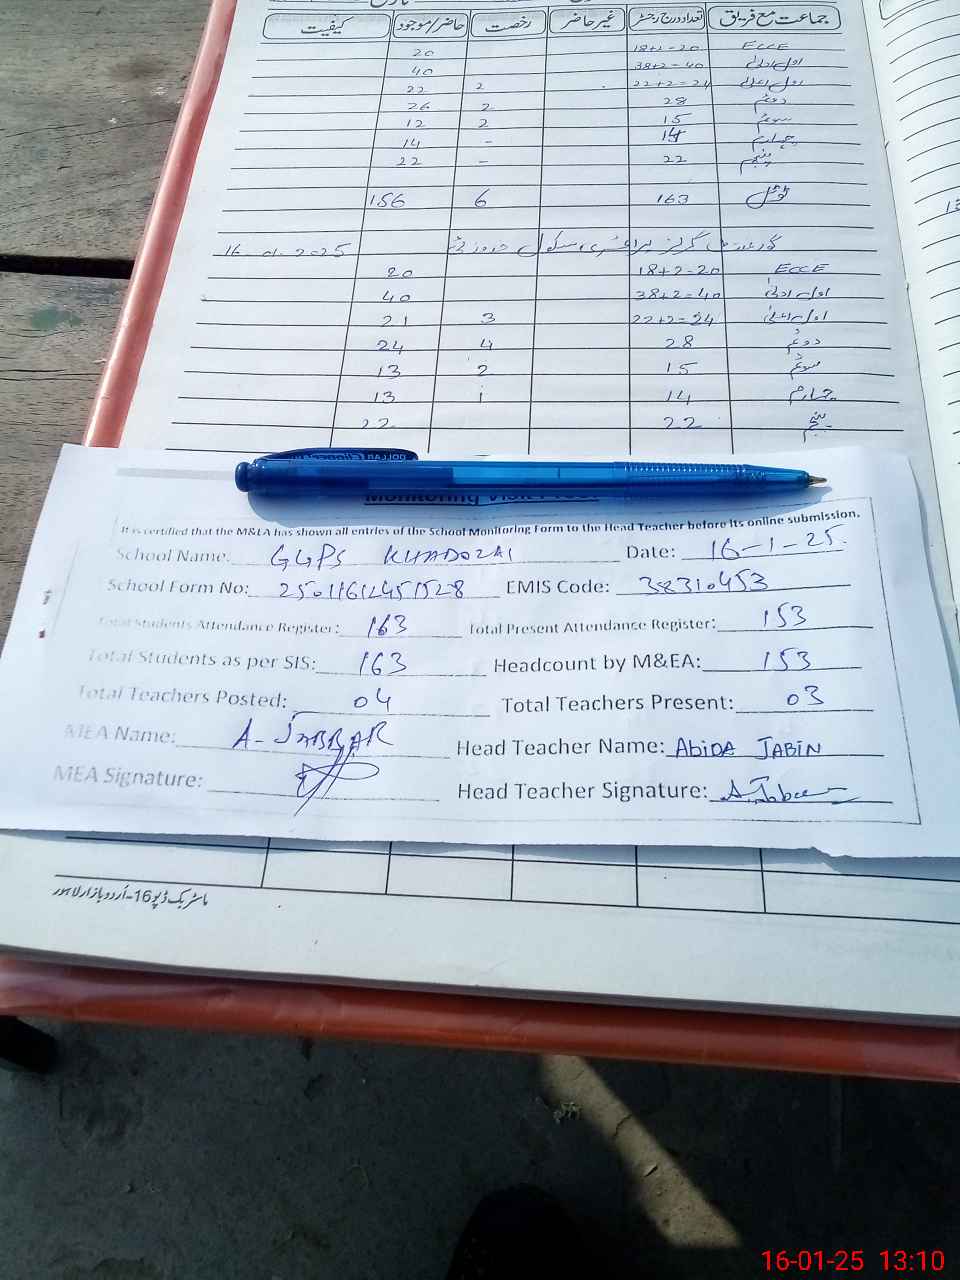 جماعت مع فریق تعداد درج رجسٹر غیر حاضر رخصت حاضر/موجود کیفیت
ECCE 18+2-20 20
اول ادنیٰ 38+2=40 40
اول اعلیٰ 22+2=24 2 22
دوئم 28 2 26
سوئم 15 2 12
چہارم 14 - 14
پنجم 22 - 22
ٹوٹل 163 6 156
گورنمنٹ گرلز پرائمری سکول 16-01-2025
ECCE 18+2-20 20
اول ادنیٰ 38+2=40 40
اول اعلیٰ 22+2=24 3 21
دوئم 28 4 24
سوئم 15 2 13
چہارم 14 1 13
پنجم 22 22
DOLLAR Clipper
Monitoring Visit Proof
It is certified that the M&EA has shown all entries of the School Monitoring Form to the Head Teacher before its online submission.
School Name: GGPS KHADOZAI Date: 16-1-25.
School Form No: EMIS Code: 38310453
Total Students Attendance Register: 163 Total Present Attendance Register: 153
Total Students as per SIS: 163 Headcount by M&EA: 153
Total Teachers Posted: 04 Total Teachers Present: 03
MEA Name: A-JABBAR Head Teacher Name: ABIDA JABIN
MEA Signature: Head Teacher Signature:
ماسٹر بک ڈپو 16-اُردو بازار لاہور
16-01-25 13:10